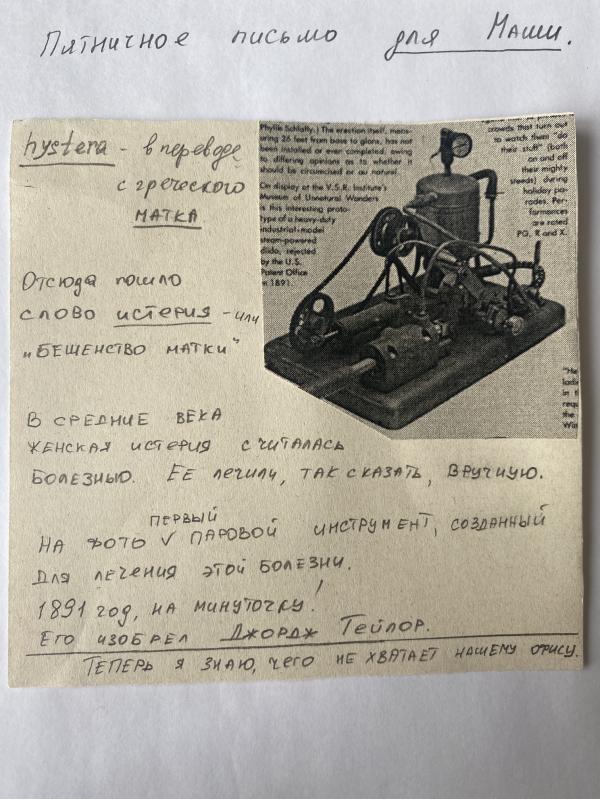 Пятничное письмо для Маши.
hystera - в переводе
с греческого
МАТКА
Отсюда пошло
слово истерия - или
„БЕШЕНСТВО МАТКИ"
В СРЕДНИЕ ВЕКА
ЖЕНСКАЯ ИСТЕРИЯ СЧИТАЛАСЬ
БОЛЕЗНЬЮ. ЕЕ ЛЕЧИЛИ, ТАК СКАЗАТЬ, ВРУЧНУЮ.
ПЕРВЫЙ
НА ФОТО V ПАРОВОЙ ИНСТРУМЕНТ, СОЗДАННЫЙ
ДЛЯ ЛЕЧЕНИЯ ЭТОЙ БОЛЕЗНИ.
1891 год, НА МИНУТОЧКУ!
ЕГО ИЗОБРЕЛ ДЖОРДЖ ТЕЙЛОР.
ТЕПЕРЬ Я ЗНАЮ, ЧЕГО НЕ ХВАТАЕТ НАШЕМУ ОФИСУ.
Phyllis Schlafly.) The erection itself, meas-
uring 26 feet from base to glans, has not
been installed or ever completed, owing
to differing opinions as to whether it
should be circumcised or au naturel.
On display at the V.S.R. Institute's
Museum of Unnatural Wonders
is this interesting proto-
type of a heavy-duty
industrial-model
steam-powered
dildo, rejected
by the U.S.
Patent Office
in 1891.
crowds that turn out
to watch them "do
their stuff" (both
on and off
their mighty
steeds) during
holiday pa-
rades. Per-
formances
are rated
PG, R and X.
"He
ladi
in t
requ
the
Win